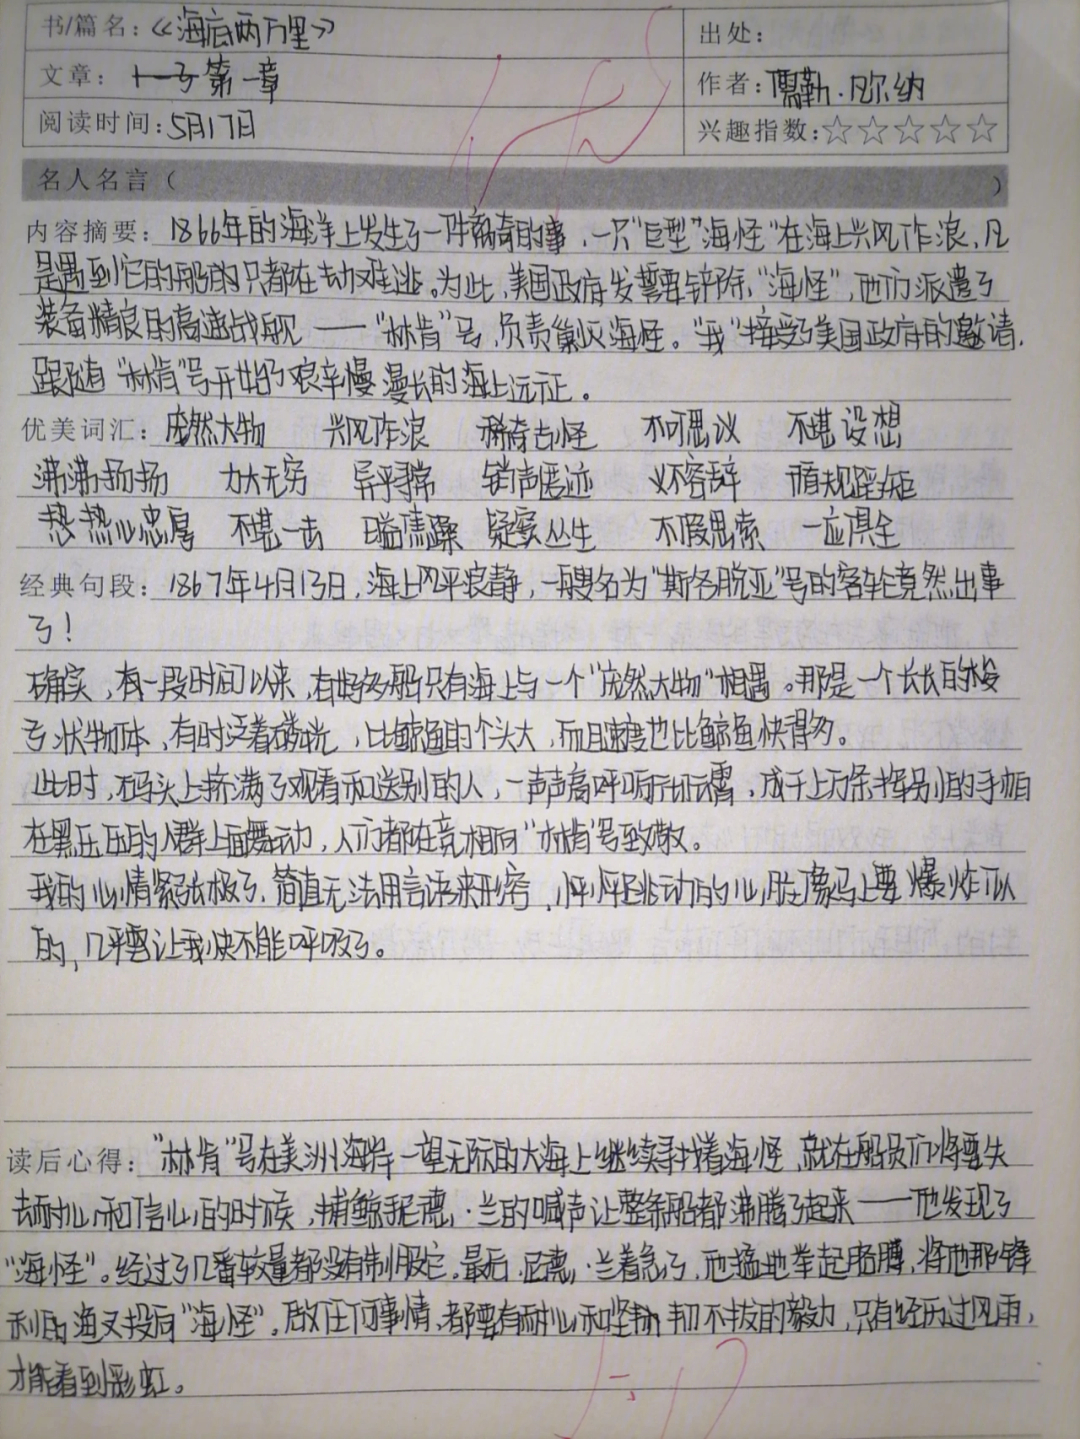 书/篇名：《海底两万里》
出处：
文章：第一章
作者：儒勒.凡尔纳
阅读时间：5月17日
兴趣指数：☆☆☆☆☆
名人名言（ ）
内容摘要：1866年的海洋上发生了一件离奇的事，一只"巨型"海怪"在海上兴风作浪，凡
是遇到它的船的只都在劫难逃。为此，美国政府发誓要铲除"海怪"，他们派遣了
装备精良的高速战舰——"林肯"号，负责剿灭海怪。"我"接受了美国政府的邀请，
跟随"林肯"号开始了艰辛慢漫长的海上远征。
优美词汇：庞然大物 兴风作浪 稀奇古怪 不可思议 不堪设想
沸沸扬扬 力大无穷 异乎寻常 销声匿迹 义不容辞 循规蹈矩
热心忠厚 不堪一击 日益焦躁 疑窦丛生 不假思索 一应俱全
经典句段：1867年4月13日，海上风平浪静，一艘名为"斯各脱亚"号的客轮竟然出事
了！
确实，有一段时间以来，有好多船只有海上与一个"庞然大物"相遇。那是一个长长的梭
子状物体，有时泛着磷光，比鲸鱼的个头大，而且速度也比鲸鱼快得多。
此时，码头上挤满了观看和送别的人，一声声高呼响彻云霄，成千上万条挥别的手帕
在黑压压的人群上面舞动，人们都在竞相向"林肯"号致敬。
我的心情紧张极了，简直无法用言语来形容，怦怦跳动的心脏像马上要爆炸似
的，几乎要让我快不能呼吸了。
读后心得："林肯"号在美洲海岸一望无际的大海上继续寻找着海怪，就在船员们将要失
去耐心和信心的时候，捕鲸手尼德·兰的喊声让整条船都沸腾了起来——他发现了
"海怪"。经过了几番较量都没有制服它。最后，尼德·兰着急了，他猛地举起胳膊，将他那锋
利的渔叉投向"海怪"。做任何事情，都要有耐心和坚韧不拔的毅力，只有经历过风雨，
才能看到彩虹。